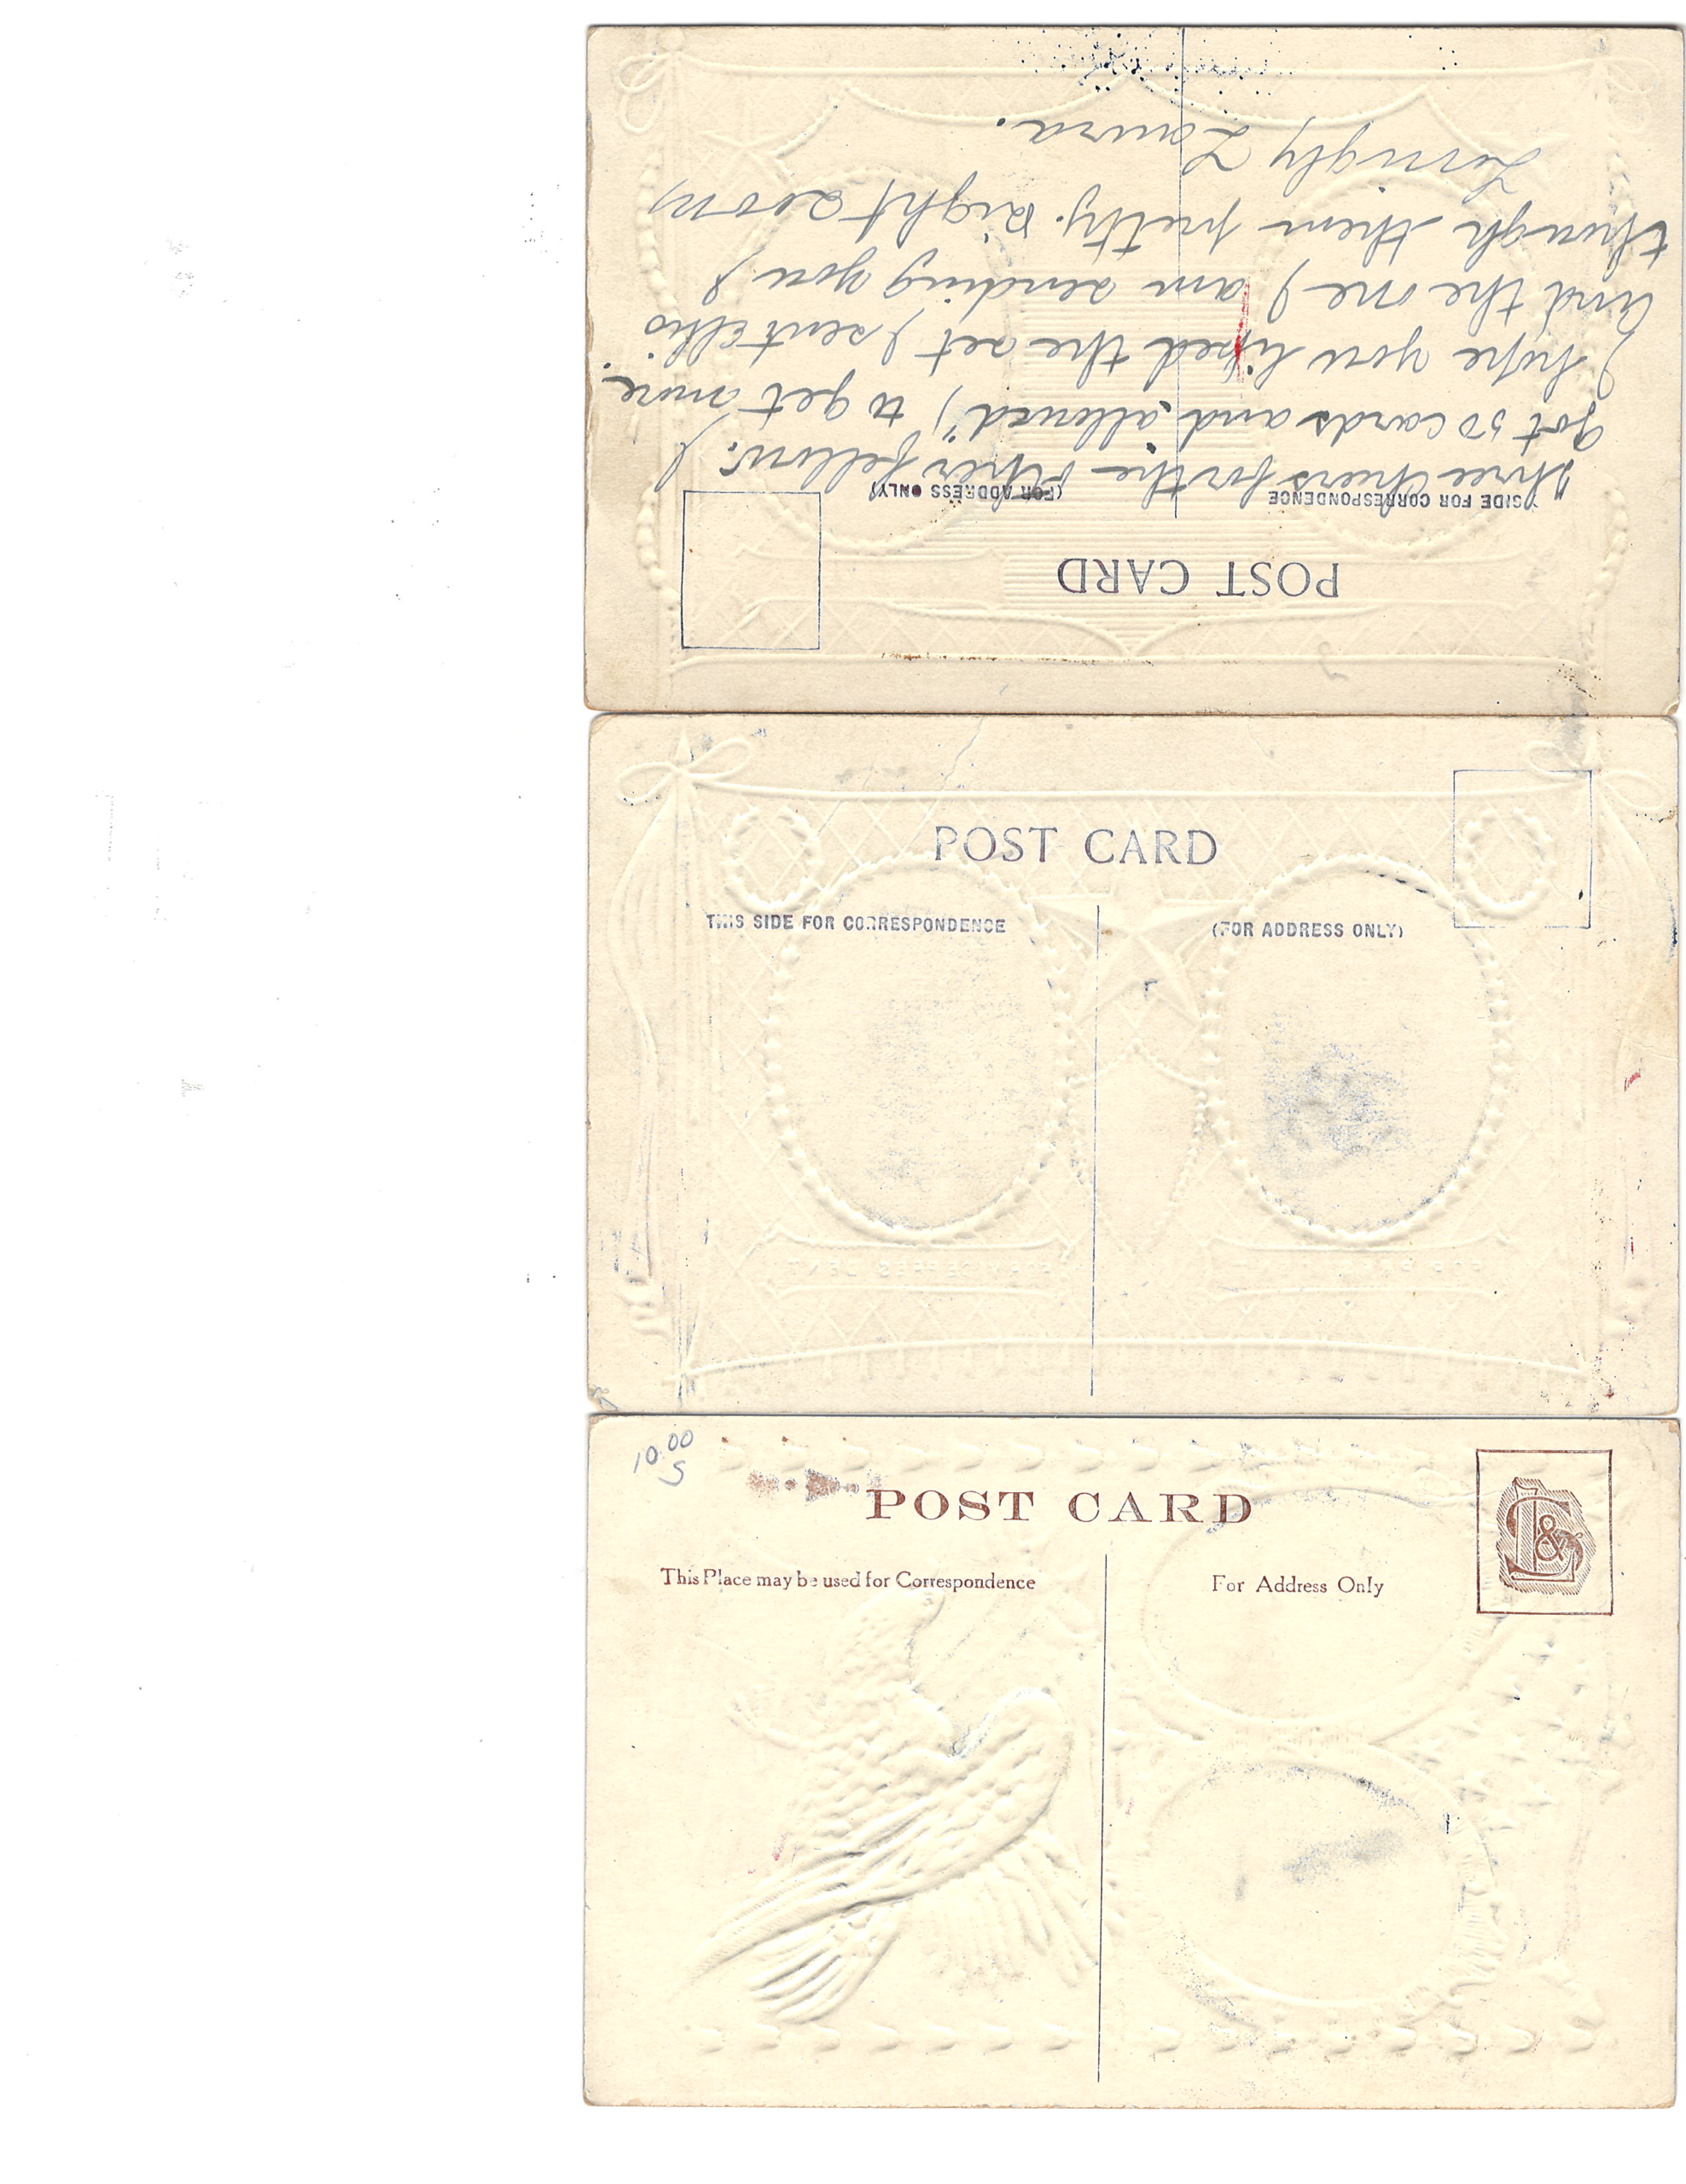 POST CARD
SIDE FOR CORRESPONDENCE (FOR ADDRESS ONLY)
"Three Cheers for the other fellow". I
got 50 cards and allowed") to get more.
I hope you liked the set I sent
and the one I am sending you I
though them pretty. Right soon
Lovingly Laura.
POST CARD
THIS SIDE FOR CORRESPONDENCE (FOR ADDRESS ONLY)
10.00
S
POST CARD
This Place may be used for Correspondence For Address Only
L&S